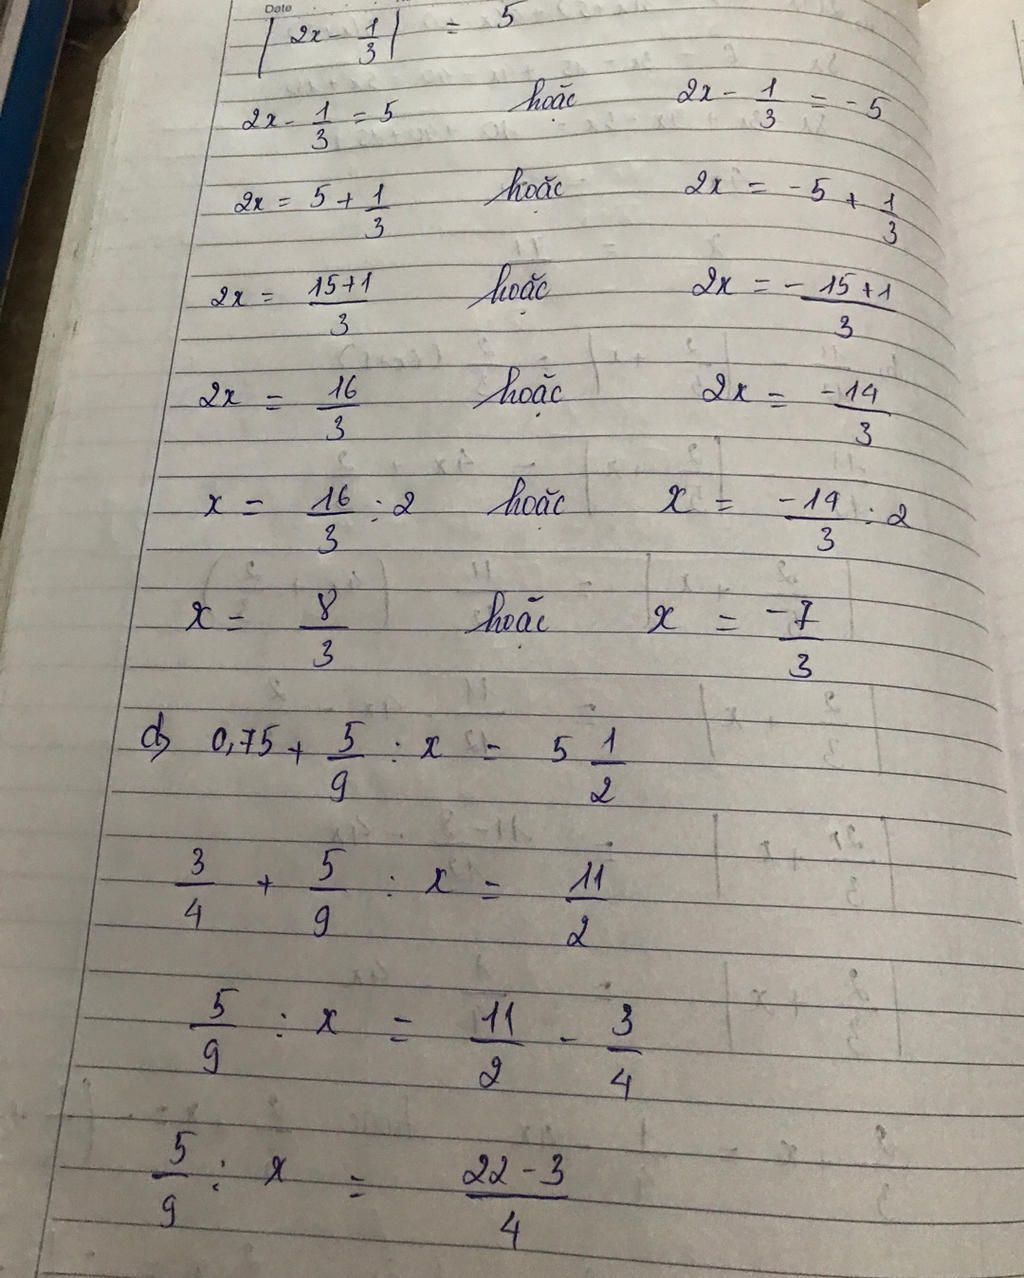 Date
|2x - 1/3| = 5
2x - 1/3 = 5 hoặc 2x - 1/3 = -5
2x = 5 + 1/3 hoặc 2x = -5 + 1/3
2x = 15+1/3 hoặc 2x = - 15+1/3
2x = 16/3 hoặc 2x = -14/3
x = 16/3 : 2 hoặc x = -14/3 : 2
x = 8/3 hoặc x = -7/3
d) 0,75 + 5/9 : x = 5 1/2
3/4 + 5/9 : x = 11/2
5/9 : x = 11/2 - 3/4
5/9 : x = 22-3/4